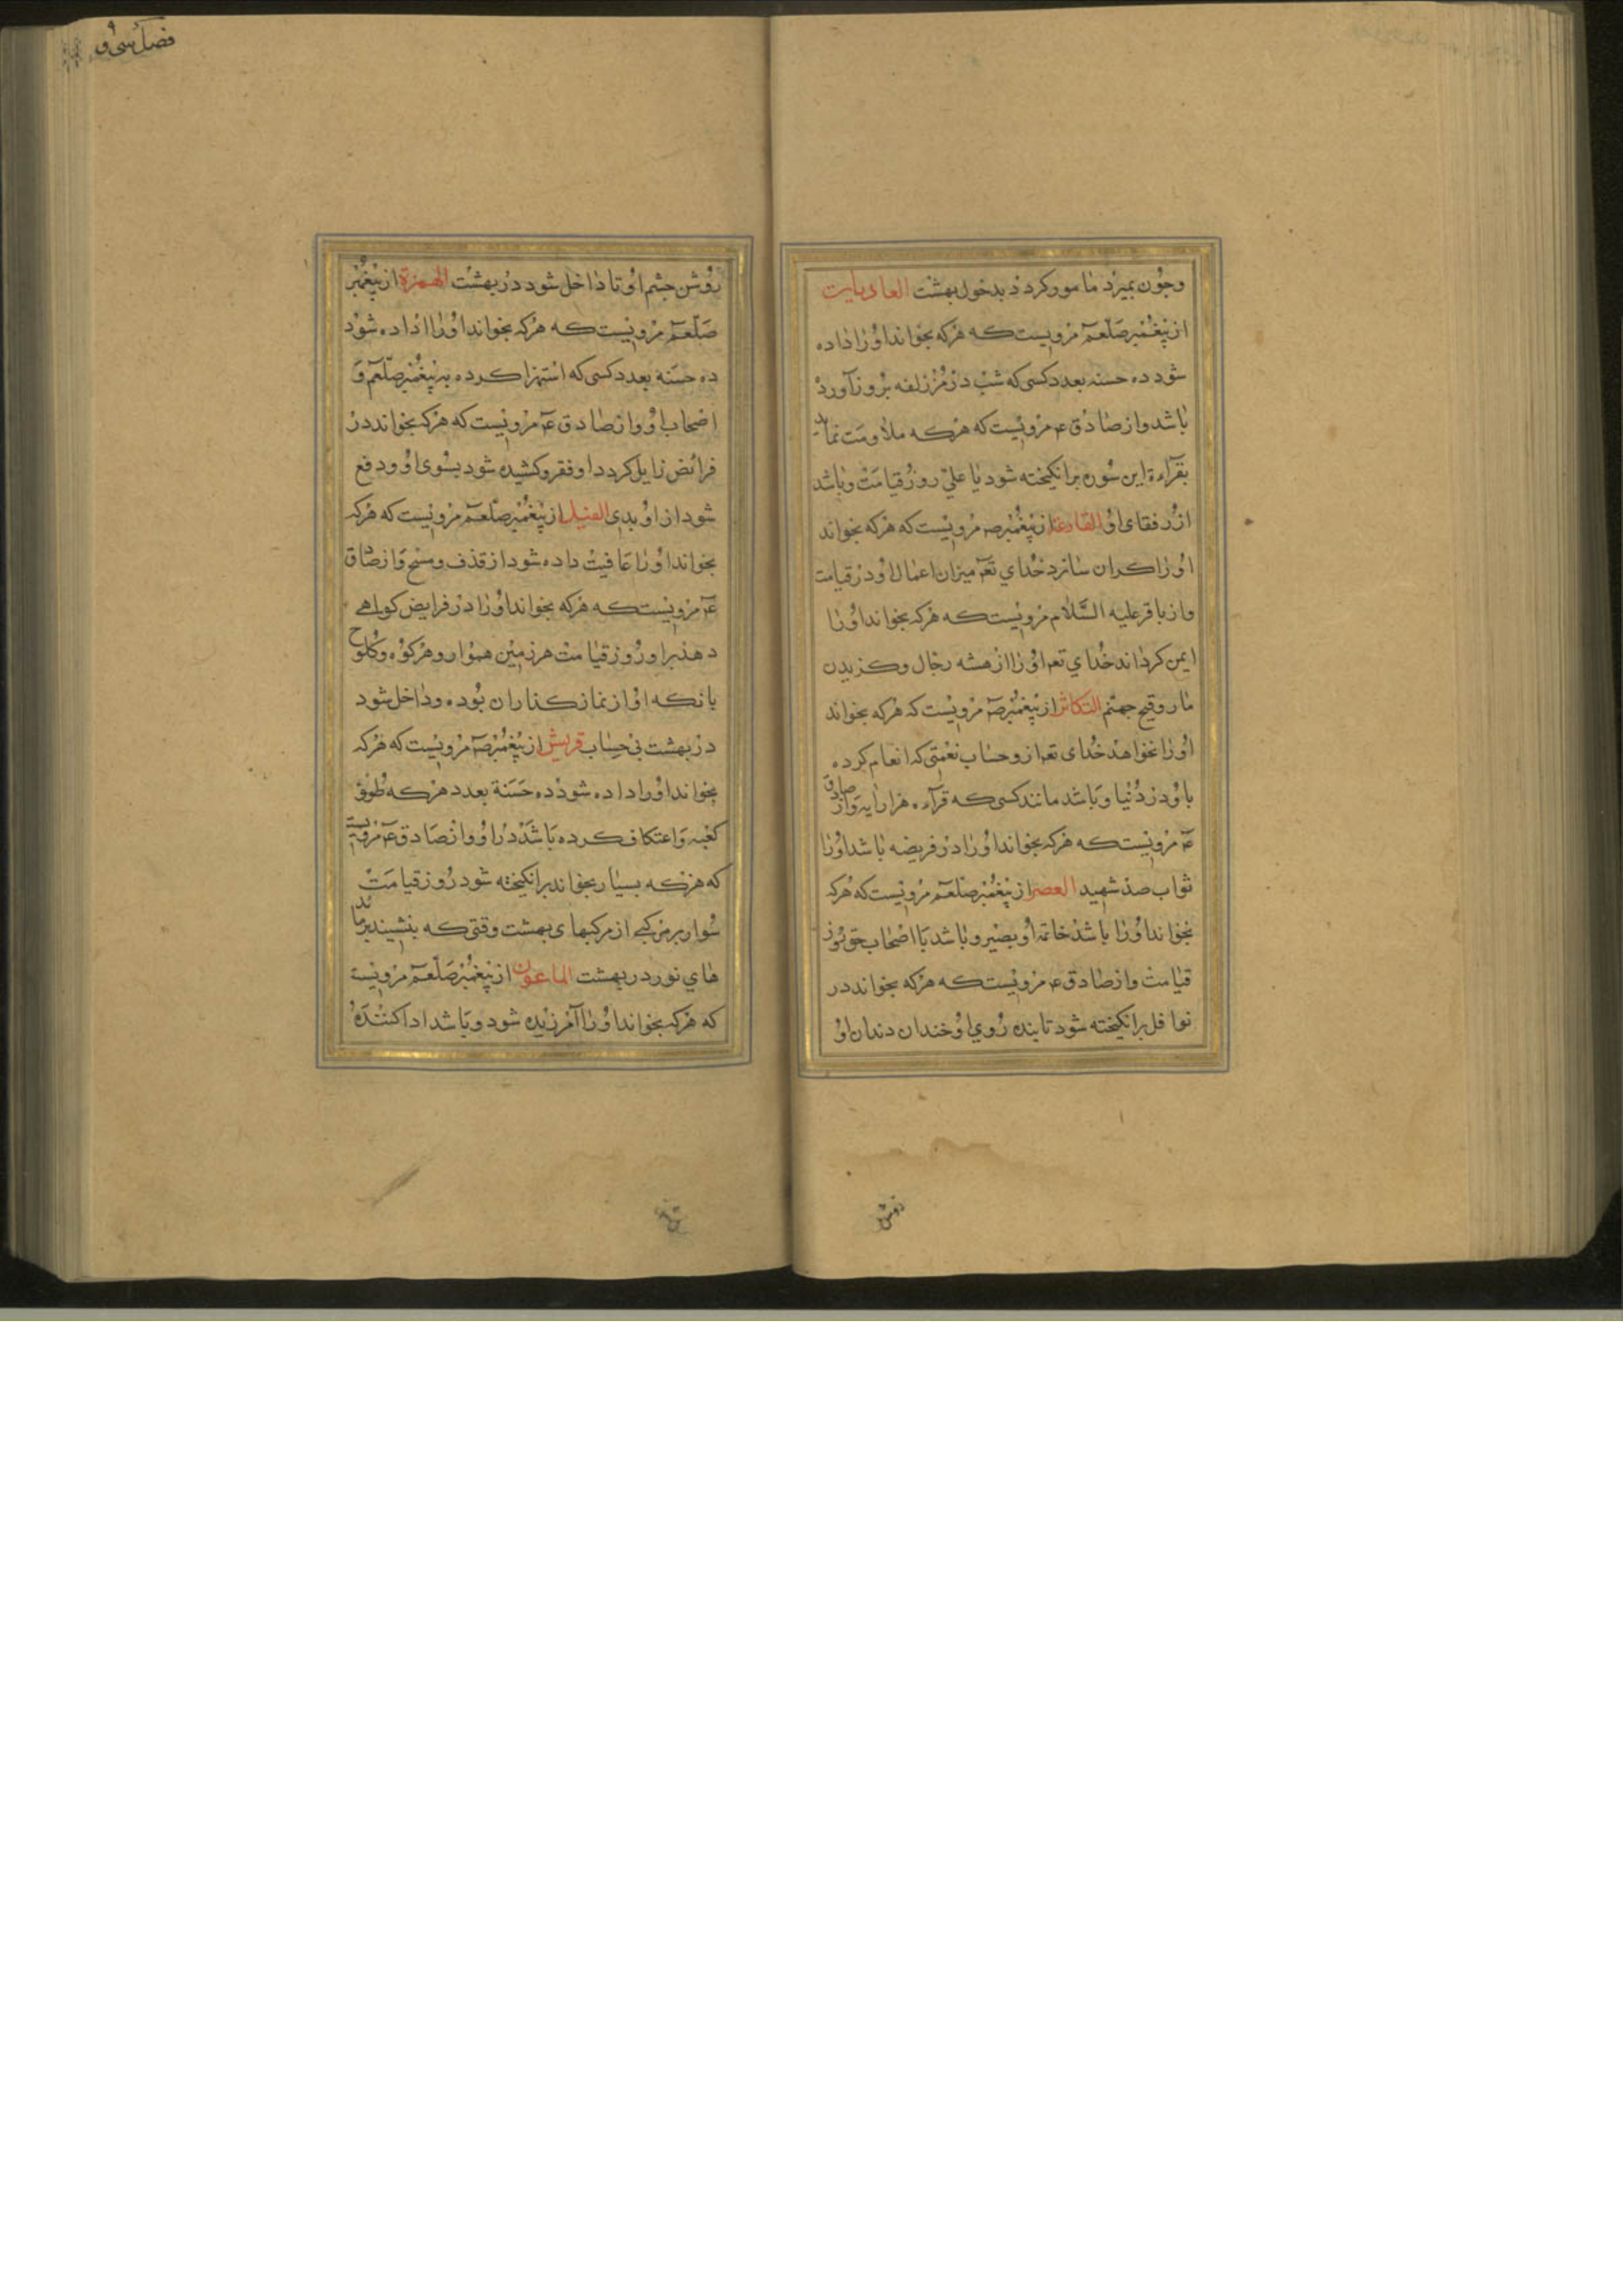 وچون بمیرد مامور کردد بدخول بهشت العادیات
از پیغمبر صلعم مرویست که هرکه بخواند اورا داده
شود ده حسنه بعدد کسی که شب در مزدلفه بروز آورد
باشد واز صادق ع مرویست که هرکه ملاومت نماید
بقرآءة این سوره برانکیخته شود با علی روز قیامت وباشد
از رفقای او القارعة از پیغمبر ص مرویست که هرکه بخواند
اورا کران سازد خدای تعم میزان اعمال او در قیامت
واز باقر علیه السلام مرویست که هرکه بخواند اورا
ایمن کرداند خدای تعم اورا از فتنه دجال وکزیدن
مار وقیح جهنم التکاثر از پیغمبر ص مرویست که هرکه بخواند
اورا نخواهد خدای تعم ازو حساب نعمتی که انعام کرده
باو در دنیا وباشد مانند کسی که قرآءه هزار ایه واز صادق
ع مرویست که هرکه بخواند اورا در فریضه باشد اورا
ثواب صد شهید العصر از پیغمبر صلعم مرویست که هرکه
بخواند اورا باشد خاتمه او بصیر وباشد با اصحاب حق روز
قیامت واز صادق ع مرویست که هرکه بخواند در
نوافل برانکیخته شود تابنده روی او خندان دندان او
روش
فصل سی و
روشن چشم او تا داخل شود در بهشت الهمزة از پیغمبر
صلعم مرویست که هرکه بخواند اورا اداده شود
ده حسنة بعدد کسی که استهزا کرده به پیغمبر صلعم و
اصحاب او واز صادق ع مرویست که هرکه بخواند در
فرائض زایل کردد او فقر وکشیده شود بسوی او ودفع
شود از او بدی الفیل از پیغمبر صلعم مرویست که هرکه
بخواند اورا عافیت داده شود از قذف ومسخ واز صادق
ع مرویست که هرکه بخواند اورا در فرایض کواهی
دهند بر او روز قیامت هر زمین هموار وهر کوه وکلوح
بانکه او از نماز کذاران بوده وداخل شود
در بهشت بی حساب قریش از پیغمبر ص مرویست که هرکه
بخواند اورا داده شود ده حسنة بعدد هرکه طوف
کعبه واعتکاف کرده باشد در او واز صادق ع مرویست
که هرکه بسیار بخواند برانکیخته شود روز قیامت
سوار بر مرکبی از مرکبهای بهشت وقتی که بنشیند بر مائد
های نور در بهشت الماعون از پیغمبر صلعم مرویست
که هرکه بخواند اورا آمرزیده شود وباشد ادا کننده